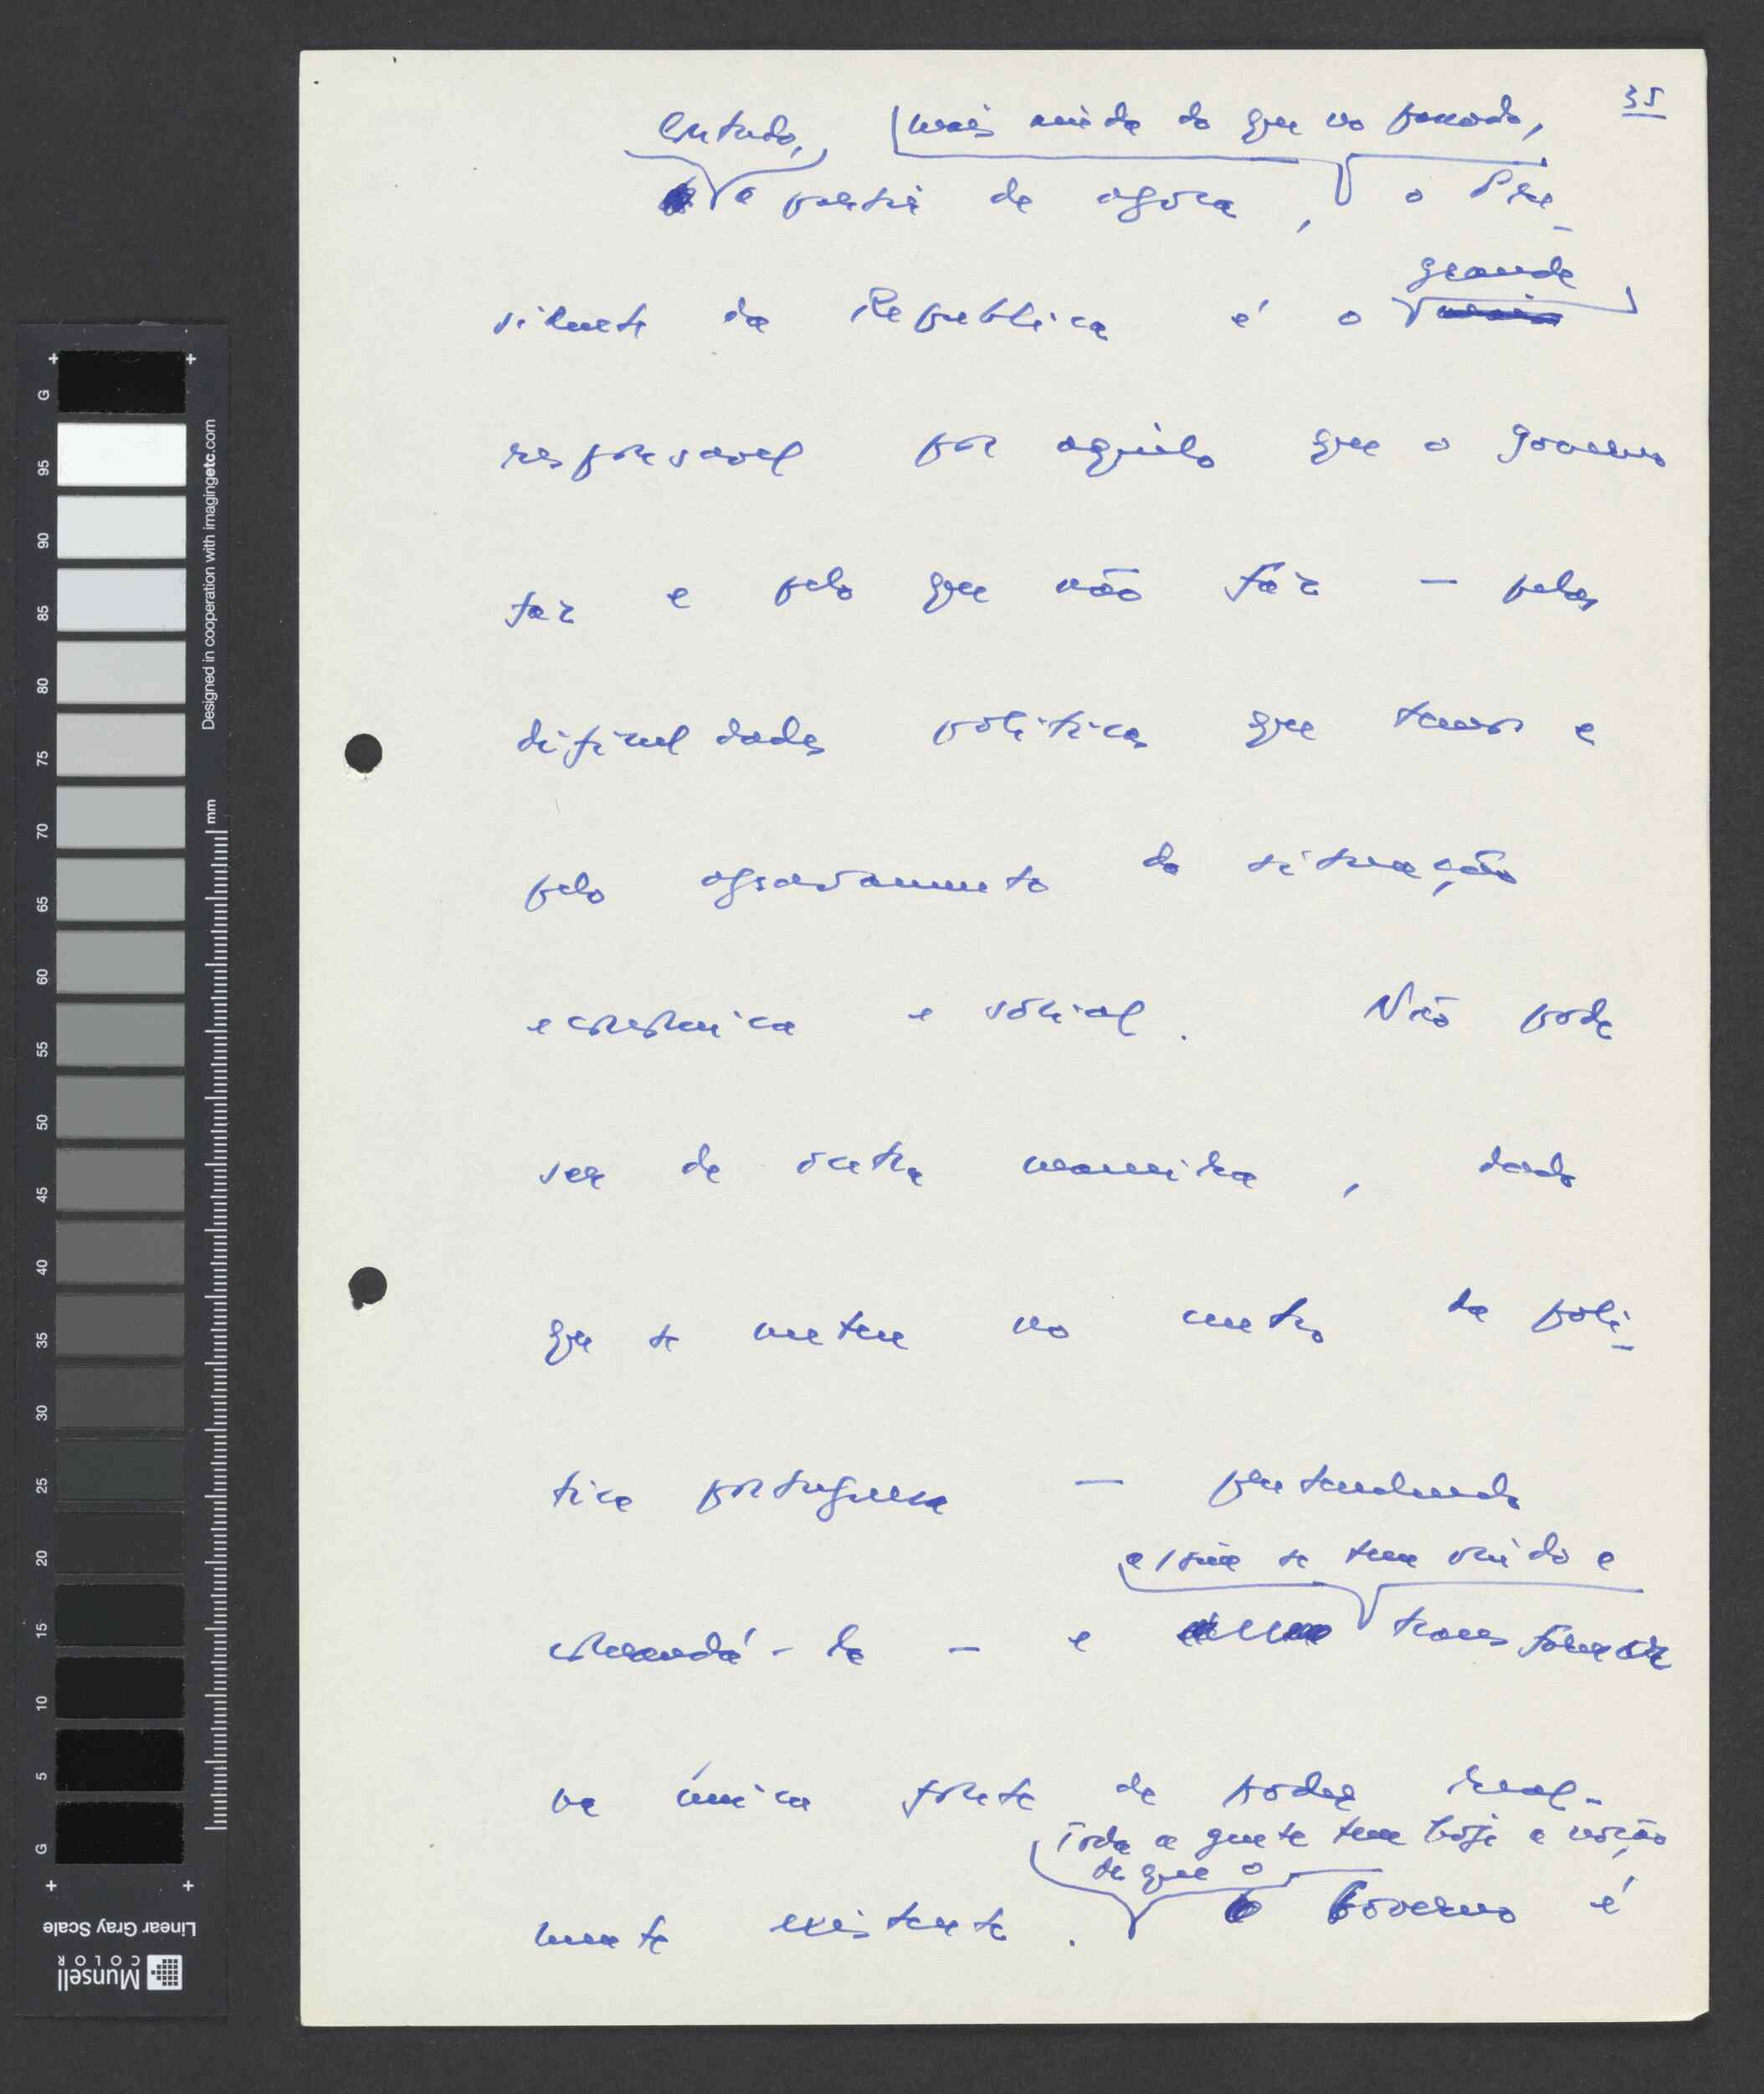 35
Contudo, mais ainda do que no passado,
a partir de agora, o Pre-
grande
sidente da Republica é o
responsavel por aquilo que o governo
faz e pelo que não faz — pelas
dificuldades politicas que temos e
pelo agravamento da situação
economica e social. Não pode
ser de outra maneira, dado
que se meteu no centro da poli-
tica portuguesa — pretendendo
assim se tem vindo a
comandá-la — e transformar
na única fonte de poder real-
Toda a gente tem hoje a noção
de que o
mente existente. Governo é
G 95 90 85 80 75 70 65 60 55 50 45 40 35 30 25 20 15 10 5 G
Designed in cooperation with imagingetc.com
mm
Linear Gray Scale
Munsell
COLOR